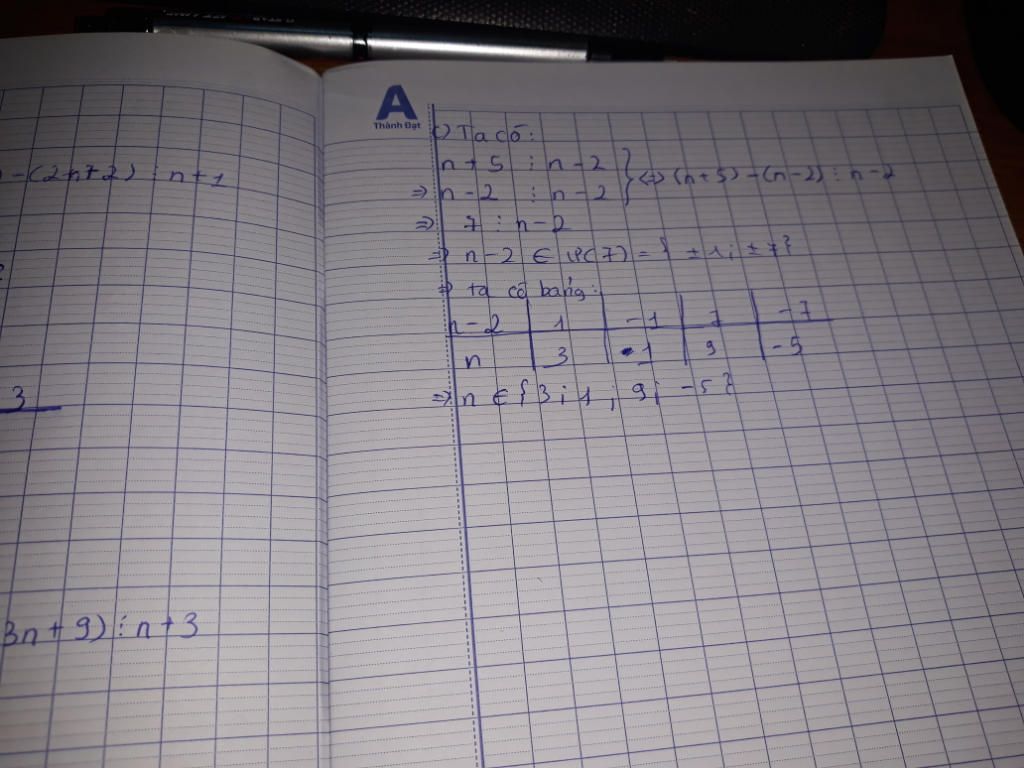 -(2n+2) ⋮ n+1
3
3n+9) ⋮ n+3
A
Thành Đạt
c) Ta có:
n+5 ⋮ n-2 } <=> (n+5)-(n-2) ⋮ n-2
=> n-2 ⋮ n-2
=> 7 ⋮ n-2
=> n-2 ∈ Ư(7) = { ±1; ±7}
=> ta có bảng:
n-2 | 1 | -1 | 7 | -7
n | 3 | 1 | 9 | -5
=> n ∈ {3; 1; 9; -5}